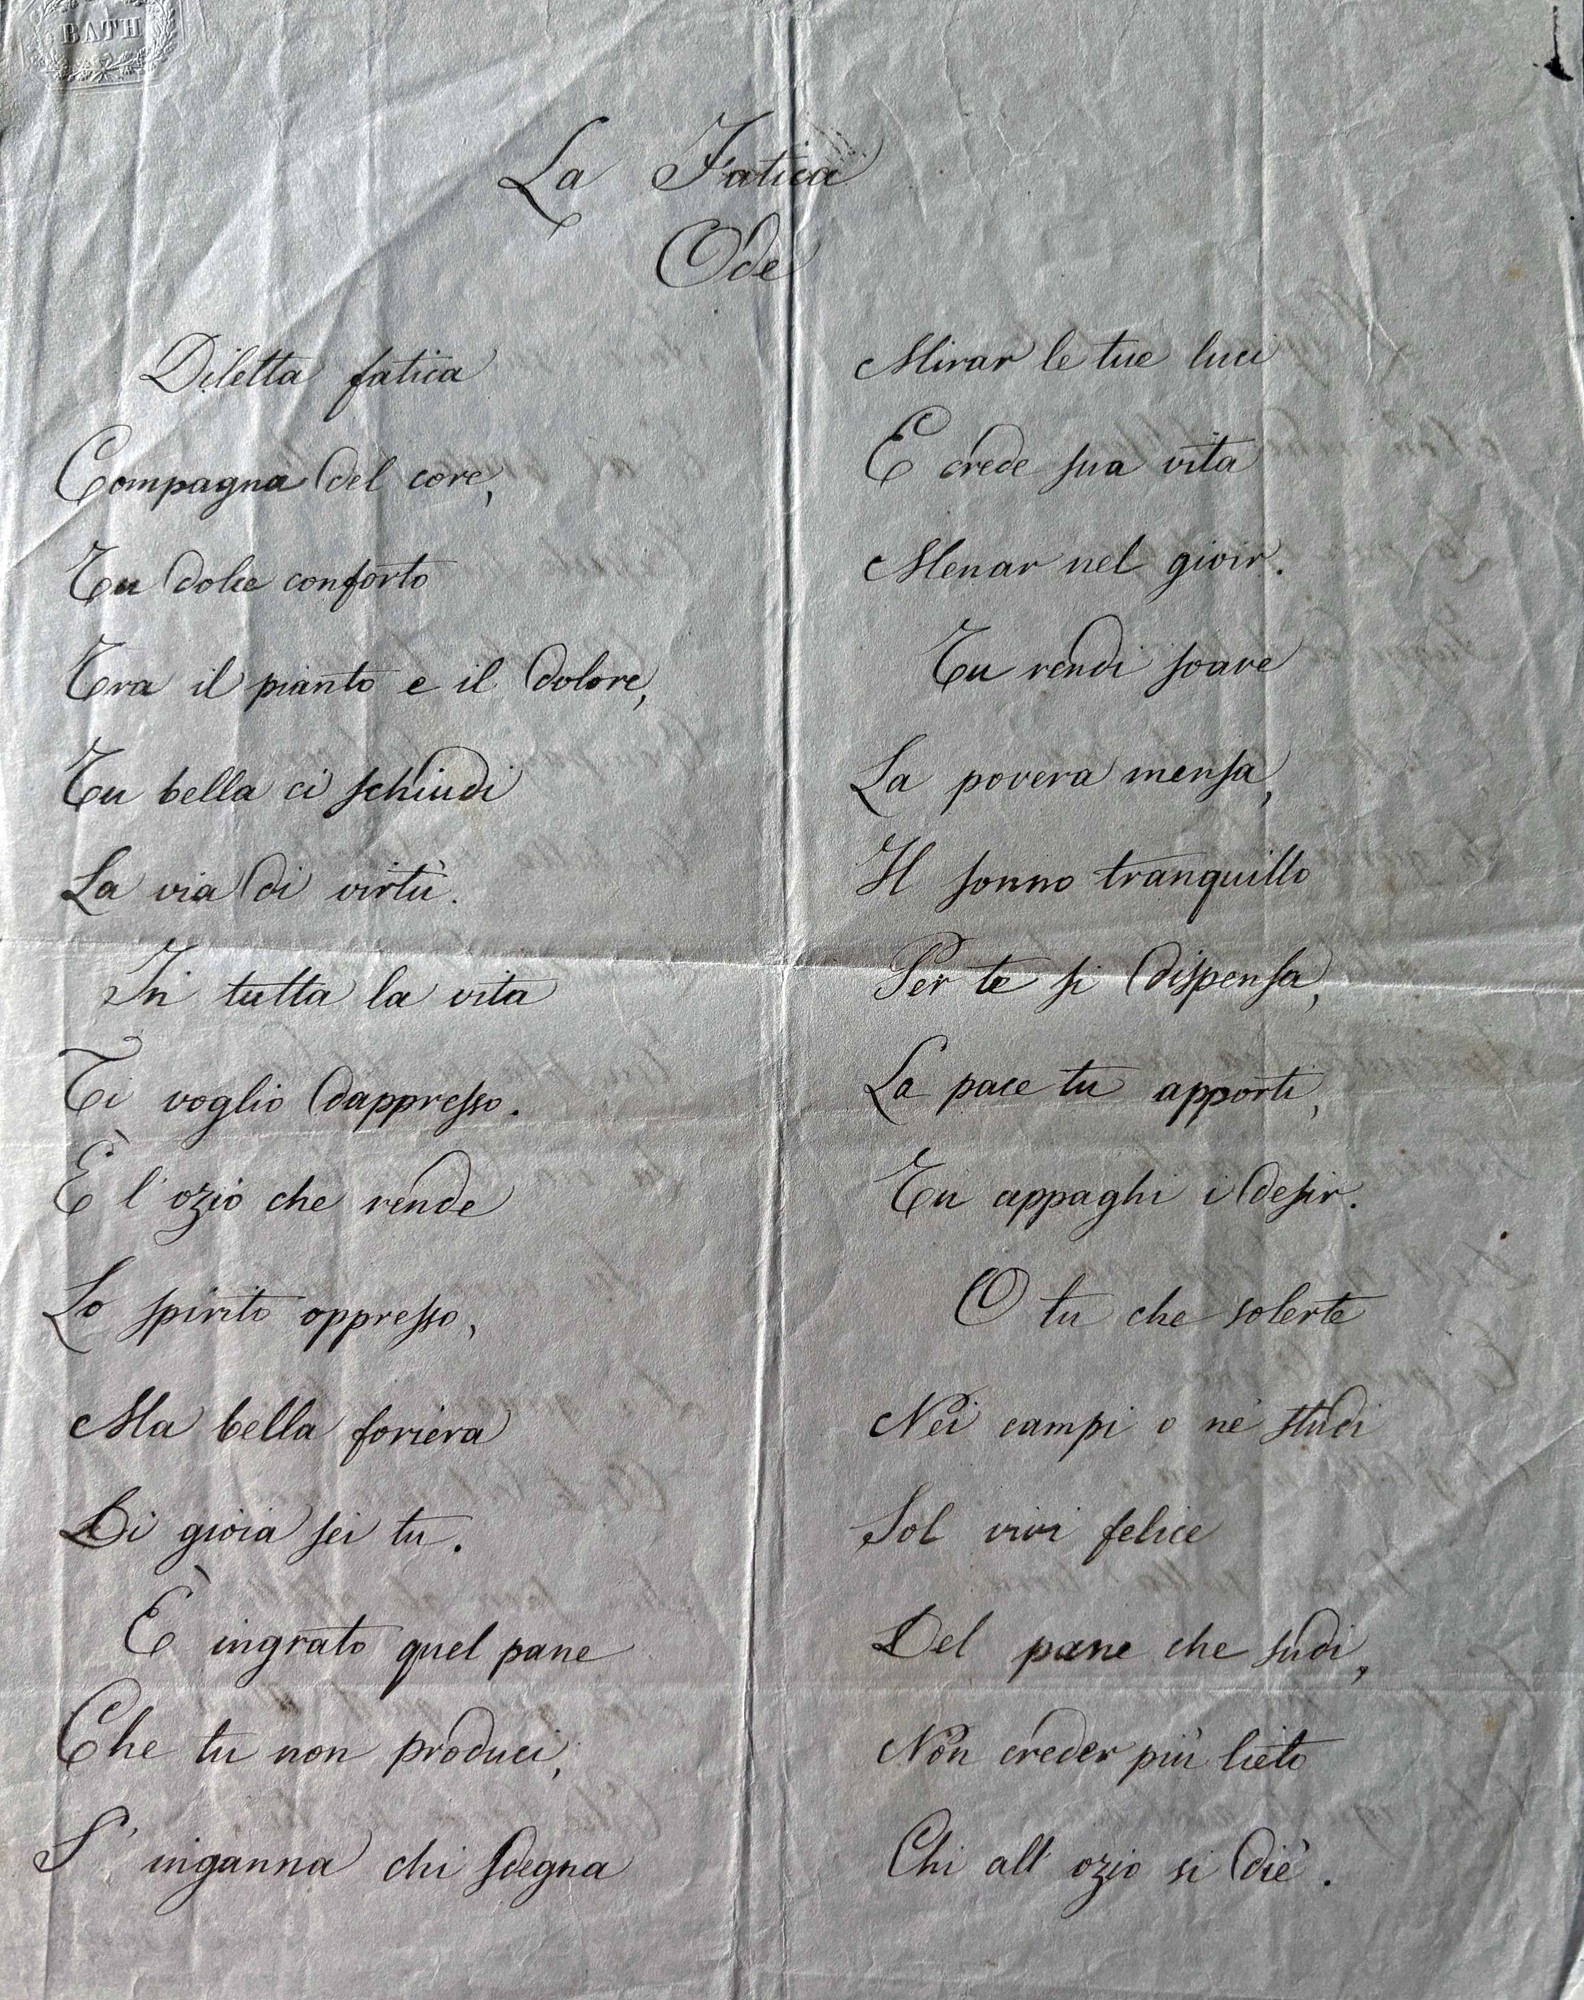 BATH
La Fatica
Ode
Diletta fatica
Compagna del core,
Tu dolce conforto
Tra il pianto e il dolore,
Tu bella ci schiudi
La via di virtù.
In tutta la vita
Ti voglio dappresso.
È l'ozio che rende
Lo spirito oppresso,
Ma bella foriera
Di gioia sei tu.
È ingrato quel pane
Che tu non produci,
S'inganna chi sdegna
Mirar le tue luci
E crede sua vita
Menar nel gioir.
Tu rendi soave
La povera mensa,
Il sonno tranquillo
Per te si dispensa,
La pace tu apporti,
Tu appaghi i desir.
O tu che solerte
Nei campi o ne' studi
Sol vivi felice
Del pane che sudi,
Non creder più lieto
Chi all'ozio si diè.